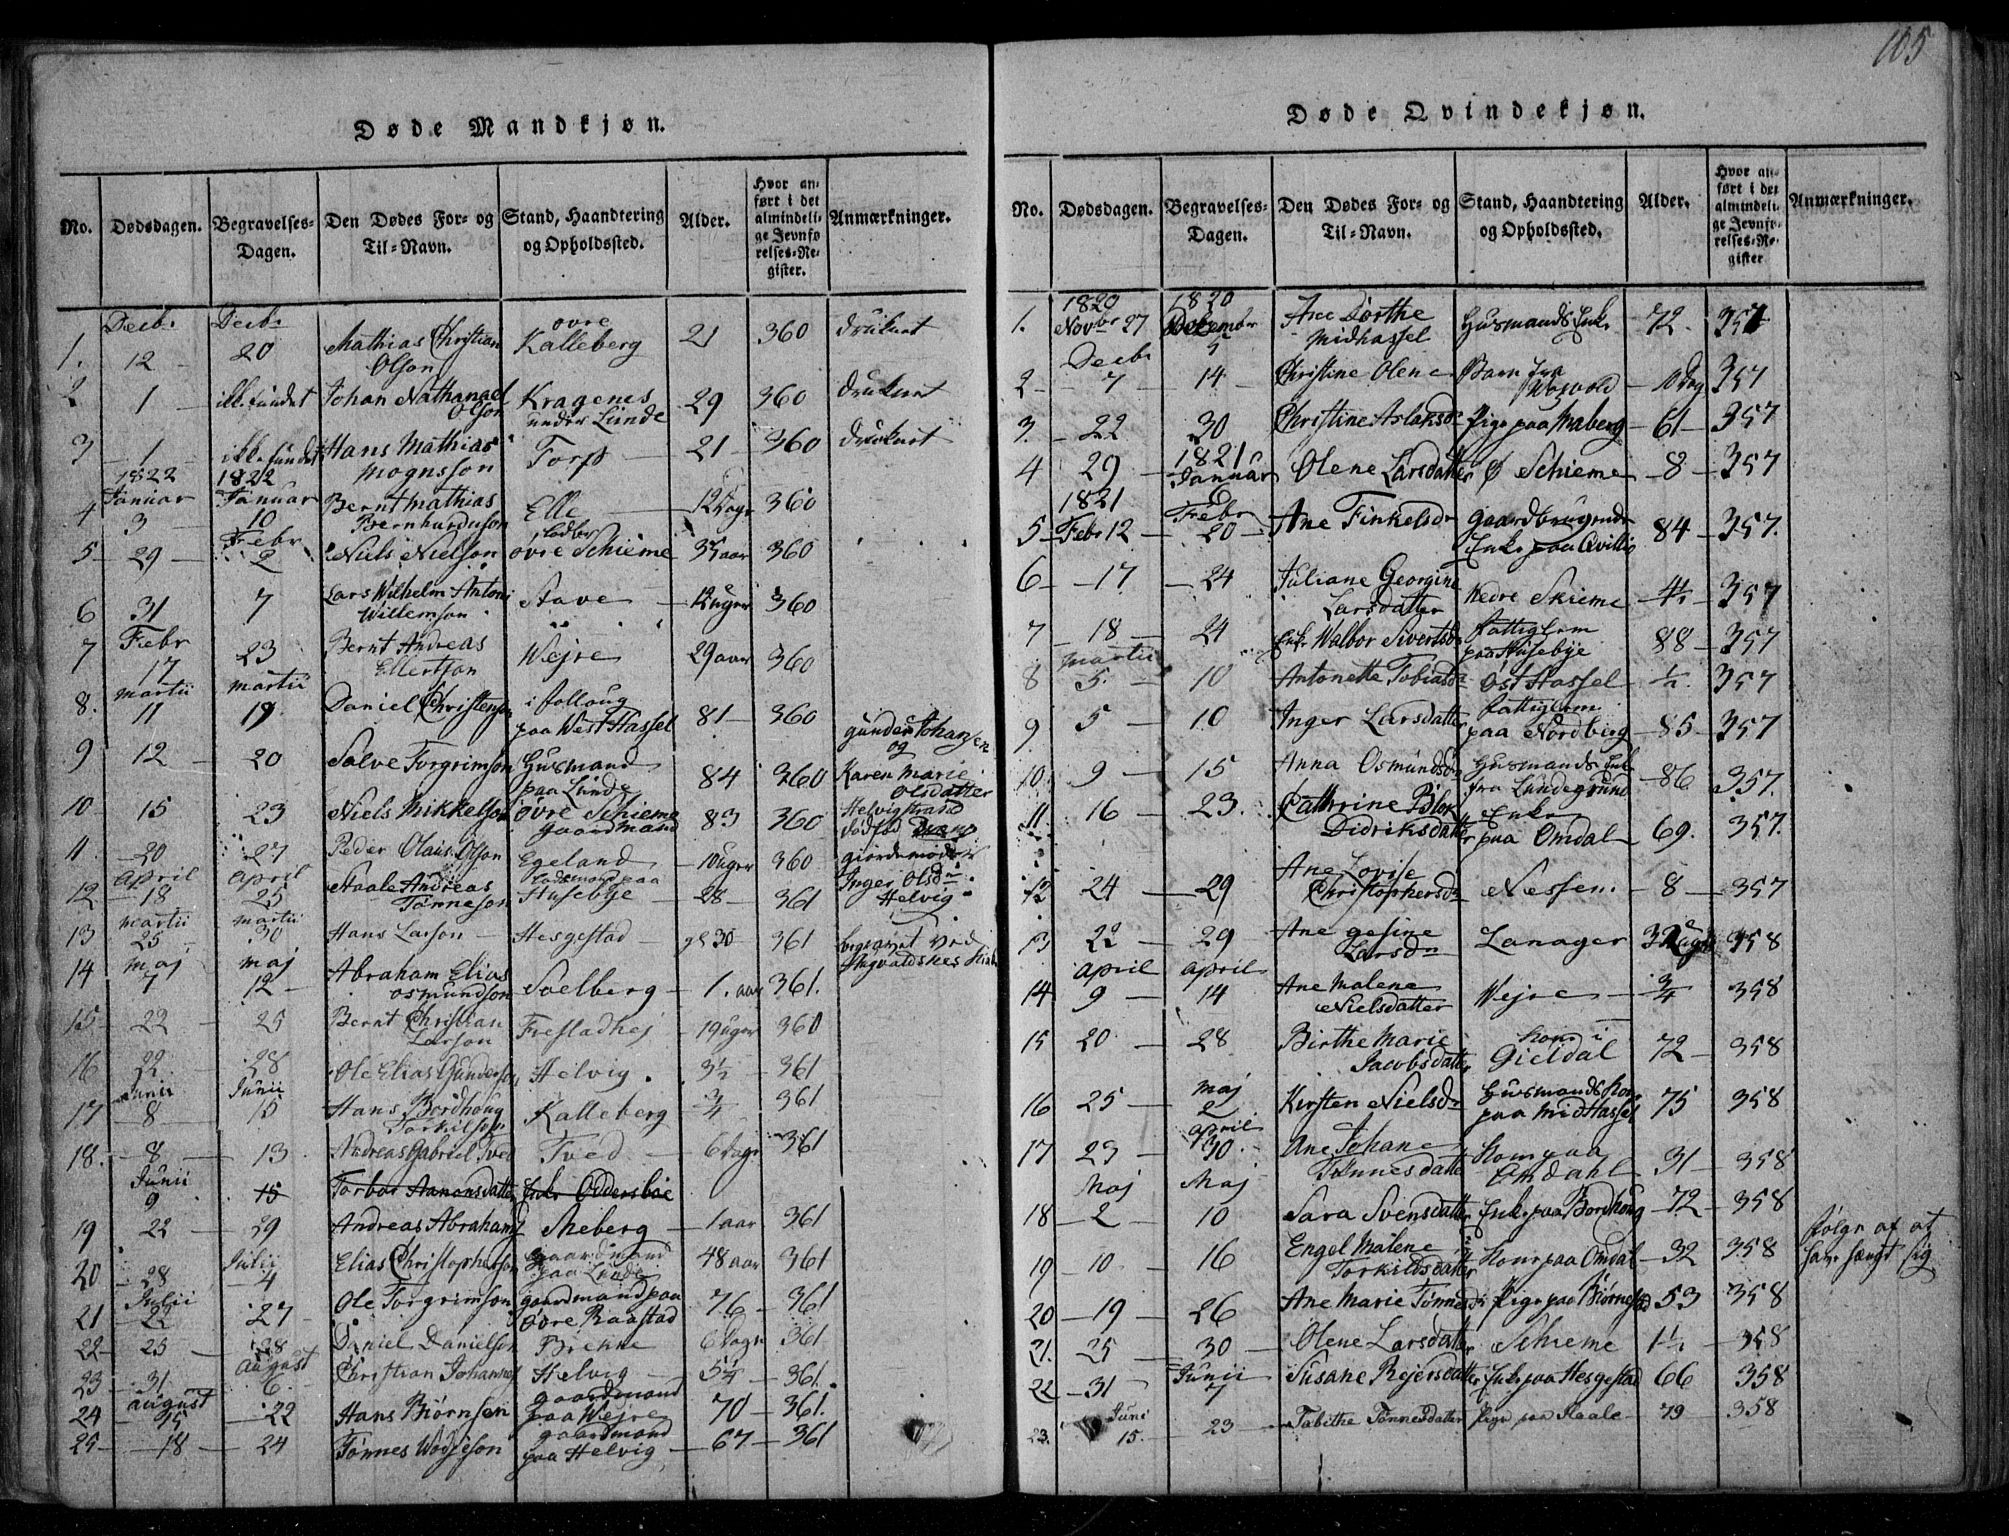 105
Døde Mandkjøn.
No. Dødsdagen. Begravelses-Dagen. Den Dødes For- og Til-Navn. Stand, Haandtering og Opholdssted. Alder. Hvor anført i det almindelige Jevnførelses-Register. Anmærkninger.
1. Decbr 12 Decbr 20 Mathias Christian Olson øvre Kalleberg 21 360 druknet
2 1 ikke fundet Johan Nathanael Olson Kragenes under Lunde 29 360 druknet
3 1 ikke fundet Hans Mathias Mognsson Torp 21 360 druknet
4 1822 Januar 3 1822 Januar 10 Bernt Mathias Bernhardusson Elle 12 Dage 360
5 29 Febr 2 Niels Nielson øvre Schieme 35 aar 360
6 31 7 Lars Wilhelm Antoni Willemson Stave 12 uger 360
7 Febr 17 23 Bernt Andreas Ellertson Wejre 29 aar 360
8. martii 11 martii 19 Daniel Christenson i folloug paa West Hassel 81 360
9 12 20 Salve Torgrimson Husmand paa Lunde 84 360 gunder Johansen og Karen Marie Olsdatter
10 15 23 Niels Mikkelson øvre Schieme gaardmand 83 360 Helvigstrand
11 20 27 Peder Olais Olson Egeland 10 uger 360 giordemoder Inger Olsdr Helvig
12 april 18 april 25 Staale Andreas Tønneson paa Husebye 28 361
13 martii 25 martii 30 Hans Larson Hesgestad gl 30 361 begravet ved
14 maj 7 maj 12 Abraham Elias Osmundson Soelberg 1. aar 361.
15 22 25 Bernt Christian Larson Frestadhej 19 uger 360
16 22 28 Ole Elias Gunderson Helvig 3½ 361
17 Junii 8 Junii 15 Hans Bordhoug Torkilson Kalleberg ¾ 361
18. 8 13 Andreas Gabriel Tved Tved 6 Dage 361
Junii 9 15 Torbor Aanonsdatter Enke Oddersbøe
19 22 29 Andreas Abrahams Aneberg 1 aar 361
20 28 Julii 4 Elias Christopherson gaardmand paa Lunde 48 aar 361
21 Julii 22 27 Ole Torgrimson gaardmand paa øvre Raastad 76 361
22 25 28 Daniel Danielson Brekne 6 Dage 361
23 31 august 6 Christian Johannes Helvig 5¼ 361
24 august 15 22 Hans Biørnsen gaardmand paa Wejre 70 361
25 18 24 Tønnes Wodseson gaardmand paa Helvig 67 361
Døde Qvindekjøn.
No. Dødsdagen. Begravelses-Dagen. Den Dødes For- og Til-Navn. Stand, Haandtering og Opholdssted. Alder. Hvor anført i det almindelige Jevnførelses-Register Anmærkninger.
1. 1820 Novbr 27 1820 Decembr 5 Ane Dorthe Midhassel Husmands Enke 72. 357
2 Decbr 7 14 Christine Olene Barn fra Westvold 10 Dag 357
3. 22 30 Christine Aslaksdr Pige paa Maberg 61 357
4 29 1821 Januar 6 Olene Larsdatter Ø Schieme 8 357
5 1821 Febr 12 Febr 20 Ane Finkelsdr gaardbrugende Enke paa Qvillis 84 357.
6 17 24 Juliane Georgine Larsdatter Nedre Skieme 4½ 357
7 18 24 Enke Walbor Sivertsdr fattiglem paa Husebye 88 357
8 martii 5. 10 Antonette Tobiasdr Øst Hassel ½. 357
9 5 10 Inger Larsdatter fattiglem paa Nordberg 85 357
10 9 15 Anna Osmundsdr Husmands Enke fra Lundegrund 86 357.
11 16 23. Cathrine Blok Didriksdatter Enke paa Omdal 69. 357.
12 24 29 Ane Lovise Christophersdr Nessen. 8 357
13 22 29 Ane gesine Larsdr Lanager 358
14 april 9 april 14 Ane Malene Nielsdatter Wejre ¾ 358
15 20 28 Birthe Marie Jacobsdatter Kone i Gieldal 72 358
16 25 maj 2 Kirsten Nielsdr Husmands Kone paa Midhassel 75 358
17 23 april 30 Ane Johane Tønnesdatter Kone paa Omdahl 31 358
18 Maj 2 Maj 10 Sara Svensdatter Enke paa Bordhoug 72 358
19 10 16 Engel Malene Torkildsdatter Kone paa Omdal 32 358 følge af at have hængt sig
20 19 26 Ane Marie Tønnesdr Pige paa Biørnestad 53 358
21. 25 30 Olene Larsdatter Schieme 1½ 358
22 31 Junii 7 Susane Rejersdatter Enke paa Hesgestad 66 358
23. Juni 15. 23 Tabithe Tønnesdatter Pige paa Haale 79 358